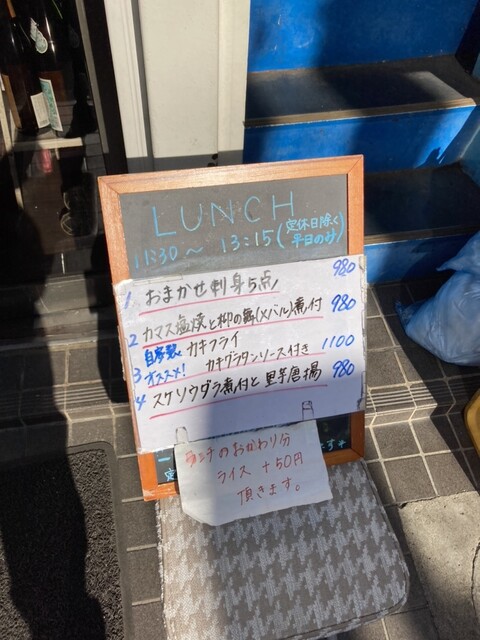 LUNCH
11:30～13:15(定休日除く平日のみ)
1 おまかせ刺身5点 980
2 カマス塩焼と柳の舞(メバル)煮付 980
自家製 カキフライ
3 オススメ! カキグラタンソース付き 1100
4 スケソウダラ煮付と里芋唐揚 980
ランチのおかわり分
ライス +50円
頂きます。